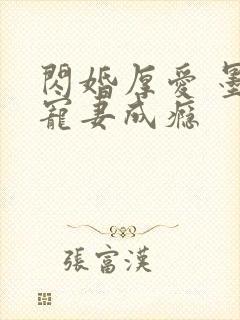 閃婚厚愛 墨
寵妻成瘾
張富漢